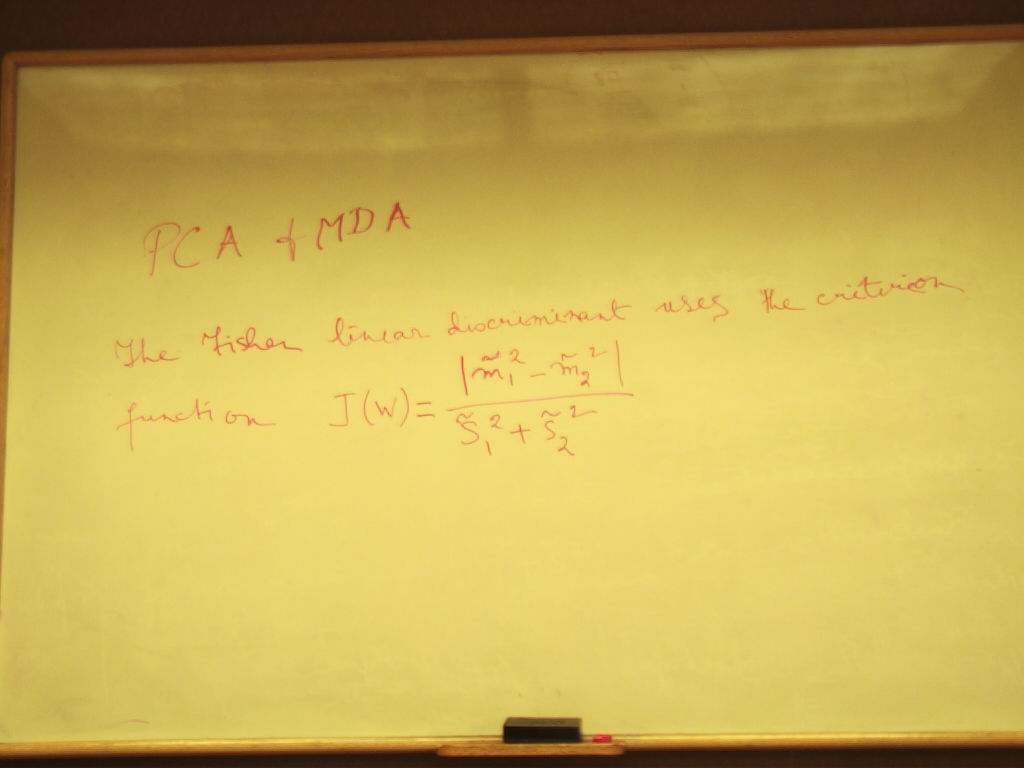 PCA & MDA
The Fisher linear discriminant uses the criterion
function J(W) = |m̃₁² - m̃₂²| / (S̃₁² + S̃₂²)